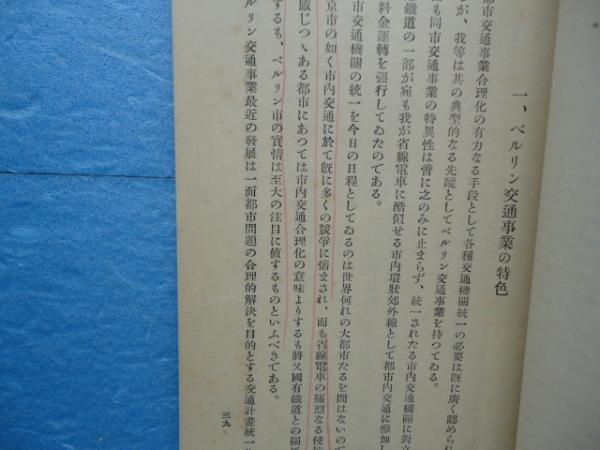 一、ベルリン交通事業の特色
都市交通事業合理化の有力なる手段として各種交通機關統一の必要は旣に廣く認められ
が、我等は其の典型的なる先蹤としてベルリン交通事業を持つてゐる。
も同市交通事業の特異性は啻に之のみに止まらず、統一されたる市內交通機關に對立
鐵道の一部が宛も我が省線電車に酷似せる市內環狀郊外線として都市內交通に參加し
料金運轉を强行してゐたのである。
市交通機關の統一を今日の日程としてゐるのは世界何れの大都市たるを問はないので
京市の如く市內交通に於て旣に多くの競爭に惱まされ、而も省線電車の痛烈なる侵
じつゝある都市にあつては市內交通合理化の意味よりするも將又國有鐵道との關係
するも、ベルリン市の實情は至大の注目に値するものといふべきである。
ルリン交通事業最近の發展は一面都市問題の合理的解決を目的とする交通計畫統一
三九